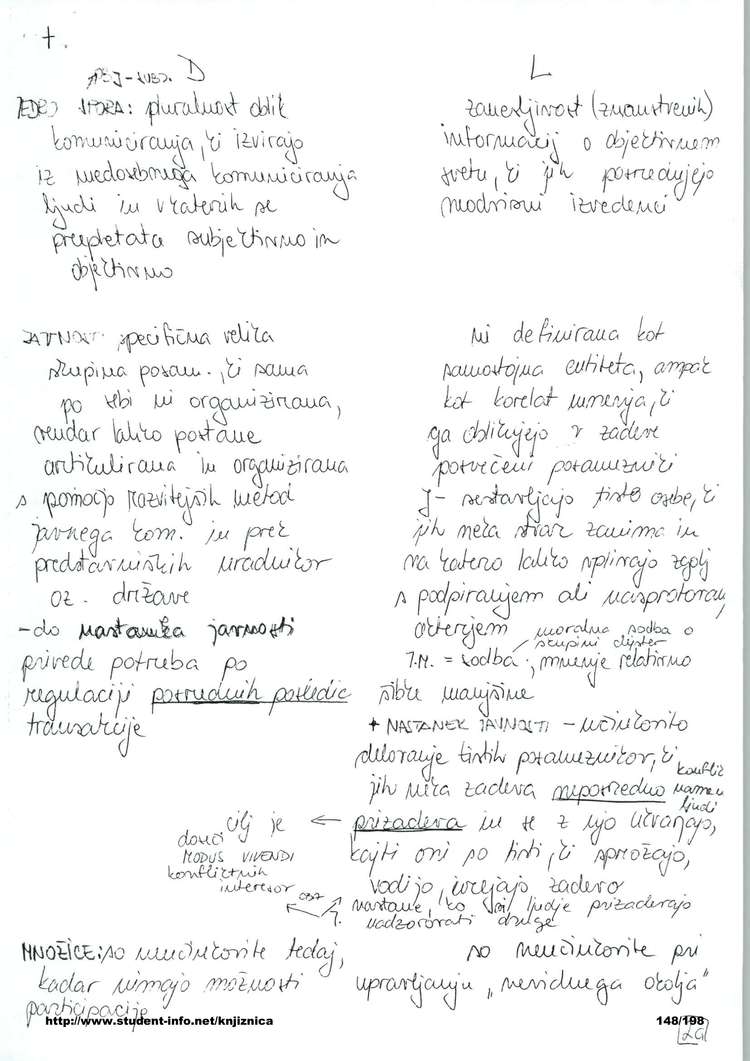 +.
OBJ-SUBJ. D
JEDRO SPORA: pluralnost oblik
komuniciranja, ki izvirajo
iz medosebnega komuniciranja
ljudi in v katerih se
prepletata subjektivno in
objektivno
L
zanesljivost (znanstvenih)
informacij o objektivnem
svetu, ki jih posredujejo
neodvisni izvedenci
JAVNOST: specifična velika
skupina posam., ki sama
po sebi ni organizirana,
vendar lahko postane
artikulirana in organizirana
s pomočjo razvitejših metod
javnega kom. in prek
predstavniških uradnikov
oz. države
- do nastanka javnosti
privede potreba po
regulaciji posrednih posledic
transakcije
ni definirana kot
samostojna entiteta, ampak
kot korelat mnenja, ki
ga oblikujejo v zadeve
posvečeni posamezniki
J - sestavljajo tiste osebe, ki
jih neka stvar zanima in
na katero lahko vplivajo zgolj
s podpiranjem ali nasprotovanjem
akterjem
moralna sodba o
skupini dejstev
J.M. = sodba, mnenje relativno
šibke manjšine
+ NASTANEK JAVNOSTI - učinkovito
delovanje tistih posameznikov, ki
jih neka zadeva neposredno
konflikt
namen
ljudi
prizadeva in se z njo ukvarjajo,
kajti oni so tisti, ki sprožajo,
vodijo, urejajo zadevo
cilj je ←
doseči
MODUS VIVENDI
konfliktnih
interesov
J. nastane, ko vsi ljudje prizadevajo
nadzorovati druge
MNOŽICE: so neučinkovite tedaj,
kadar nimajo možnosti
participacije
so neučinkovite pri
upravljanju „nevidnega okolja"
http://www.student-info.net/knjiznica
148/198